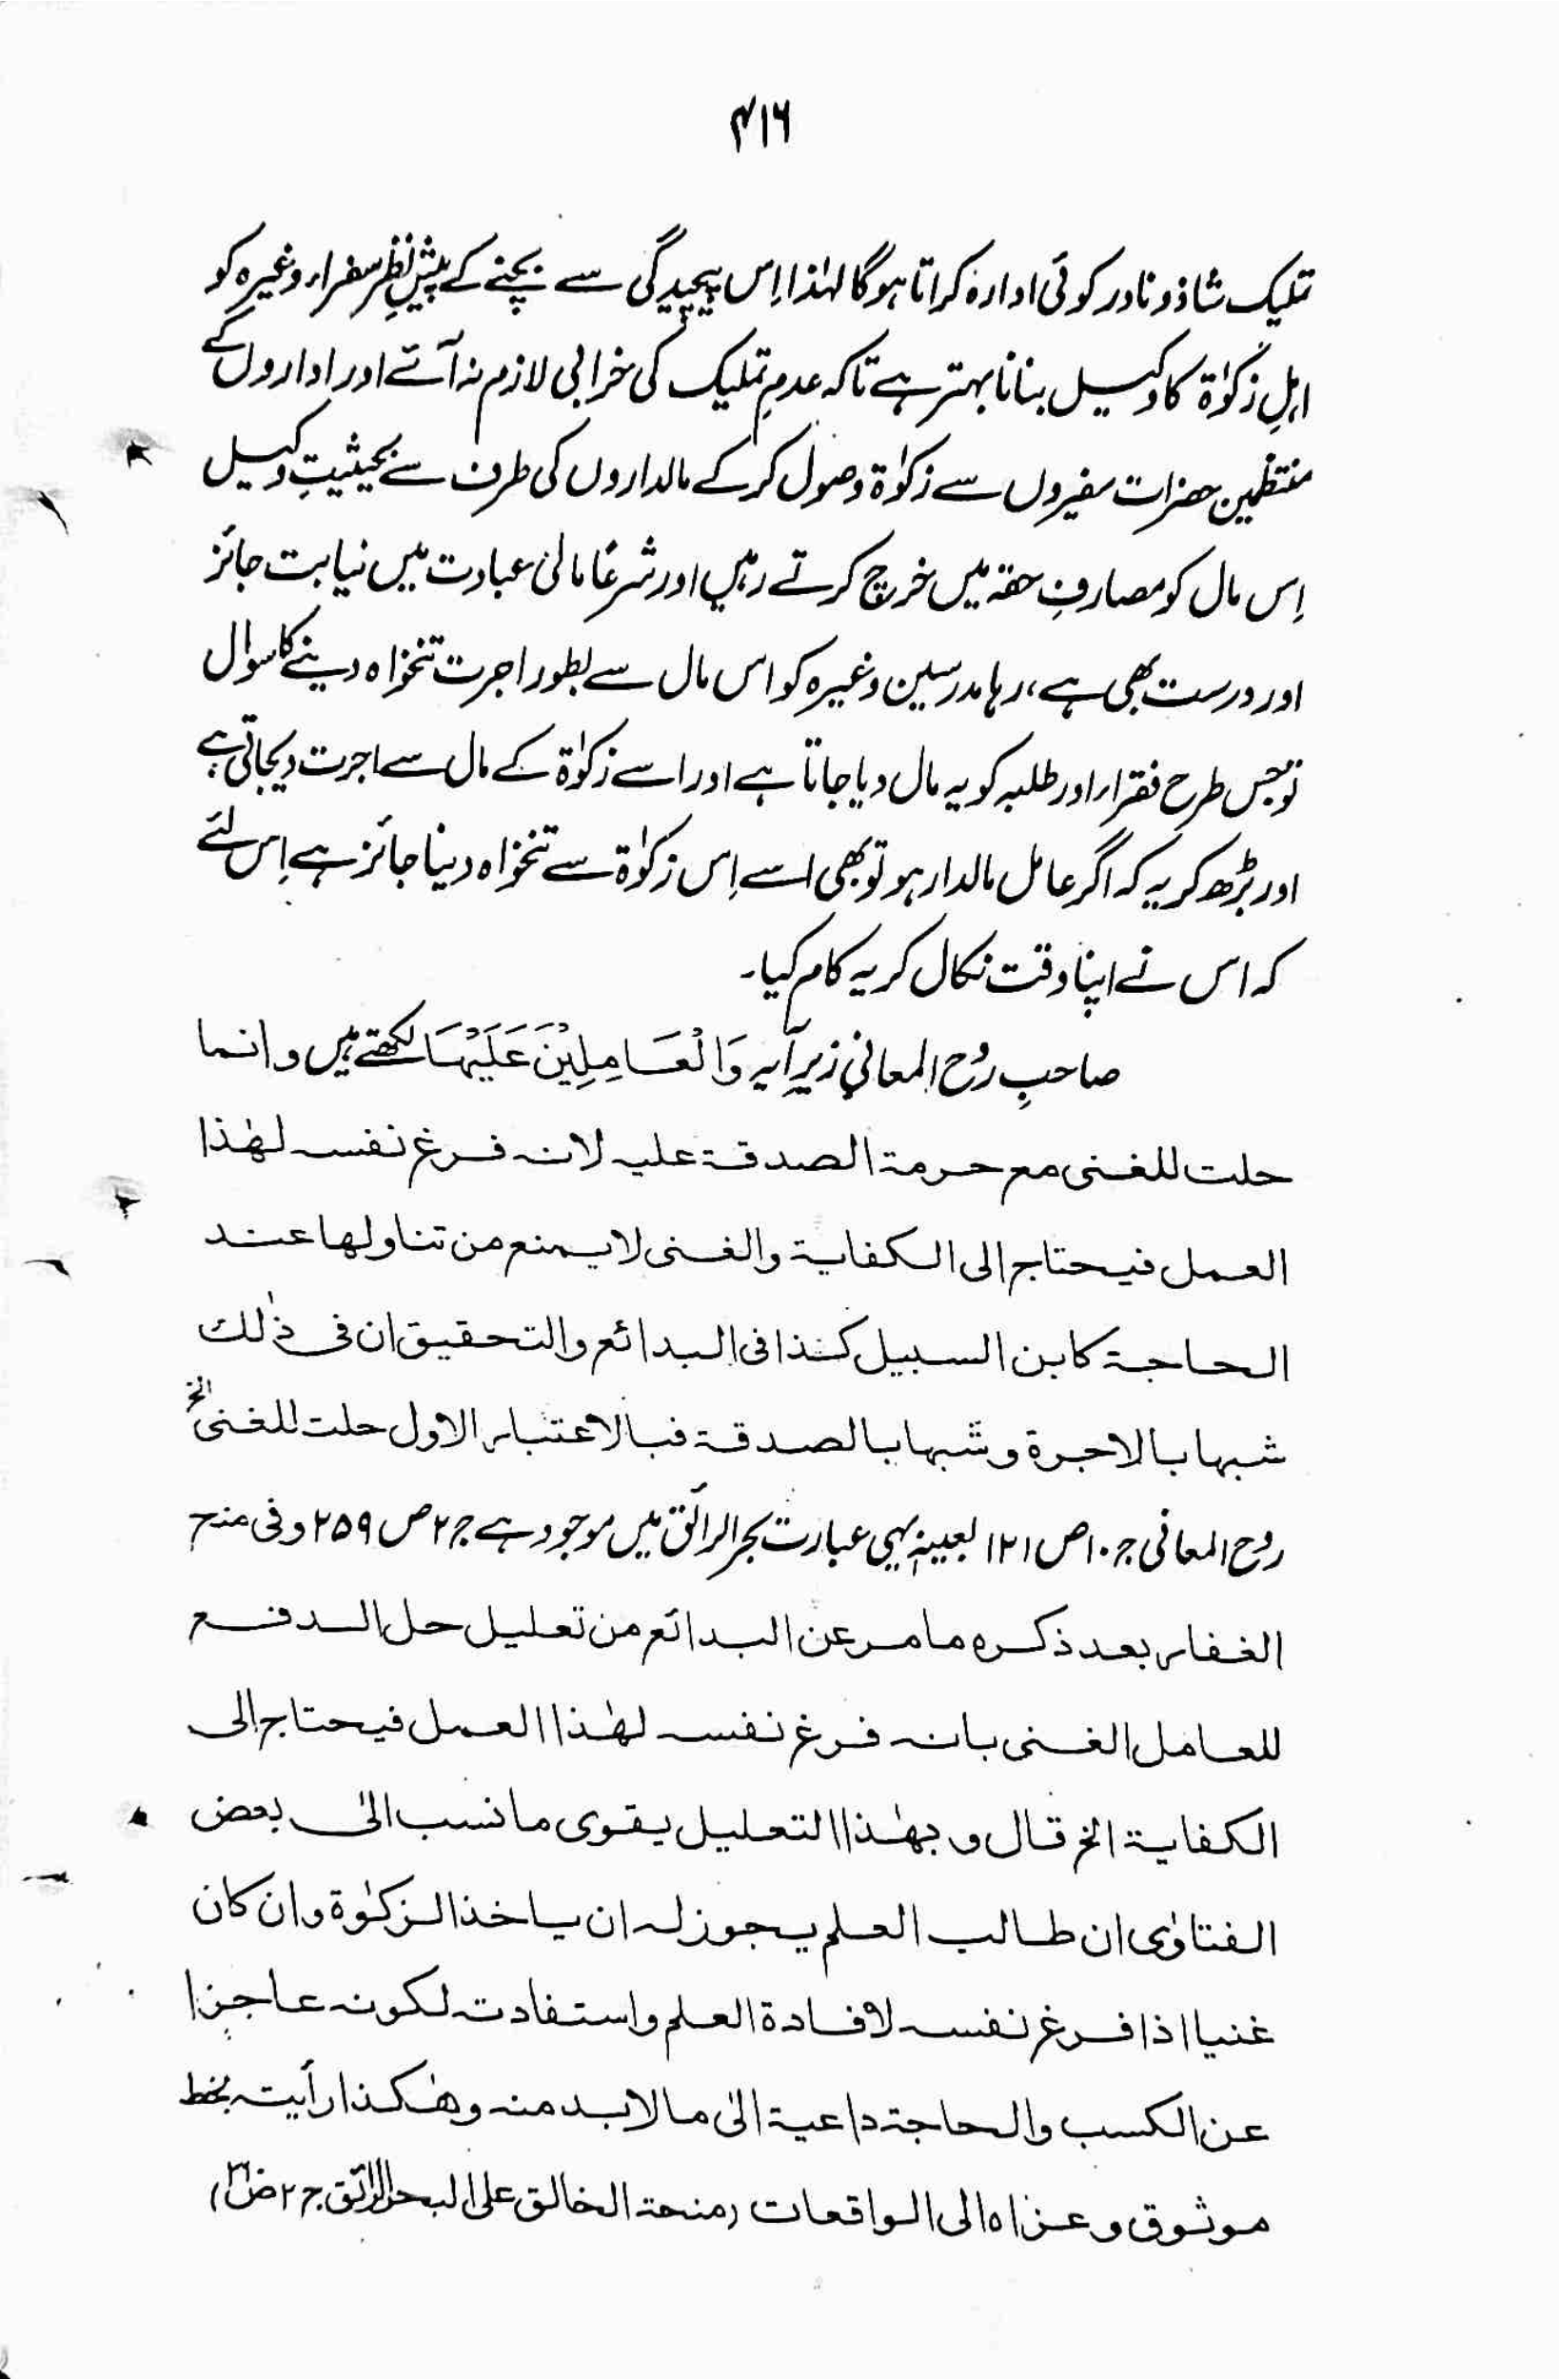 ۴۱۶
تملیک شاذ و نادر کوئی ادارہ کراتا ہوگا لہٰذا اِس پیچیدگی سے بچنے کے پیشِ نظر سفراء وغیرہ کو
اہلِ زکوٰۃ کا وکیل بنانا بہتر ہے تاکہ عدمِ تملیک کی خرابی لازم نہ آئے اور اداروں کے
منتظمین حضرات سفیروں سے زکوٰۃ وصول کرکے مالداروں کی طرف سے بحیثیتِ وکیل
اِس مال کو مصارفِ حقہ میں خرچ کرتے رہیں اور شرعًا مالی عبادت میں نیابت جائز
اور درست بھی ہے، رہا مدرسین وغیرہ کو اس مال سے بطور اجرت تنخواہ دینے کا سوال
تو جس طرح فقراء اور طلبہ کو یہ مال دیا جاتا ہے اور اسے زکوٰۃ کے مال سے اجرت دیجاتی ہے
اور بڑھ کر یہ کہ اگر عامل مالدار ہو تو بھی اسے اِس زکوٰۃ سے تنخواہ دینا جائز ہے اِس لئے
کہ اس نے اپنا وقت نکال کر یہ کام کیا۔
صاحبِ رُوح المعانی زیرِ آیہ وَالْعَامِلِیْنَ عَلَیْہَا لکھتے ہیں وانما
حلت للغنی مع حرمۃ الصدقۃ علیہ لانہ فرغ نفسہ لھٰذا
العمل فیحتاج الی الکفایۃ والغنی لایمنع من تناولھا عند
الحاجۃ کابن السبیل کذا فی البدائع والتحقیق ان فی ذٰلک
شبھا بالاجرۃ وشبھا بالصدقۃ فبالاعتبار الاول حلت للغنی الخ
رُوح المعانی ج ۱۰ ص ۱۲۱ بعینہٖ یہی عبارت بحر الرائق میں موجود ہے ج ۲ ص ۲۵۹ وفی منح
الغفار بعد ذکرہ مامر عن البدائع من تعلیل حل الدفع
للعامل الغنی بانہ فرغ نفسہ لھٰذا العمل فیحتاج الی
الکفایۃ الخ قال وبھٰذا التعلیل یقوی ما نسب الیٰ بعض
الفتاوٰی ان طالب العلم یجوز لہ ان یاخذ الزکوٰۃ وان کان
غنیا اذا فرغ نفسہ لافادۃ العلم واستفادتہ لکونہ عاجزا
عن الکسب والحاجۃ داعیۃ الیٰ ما لابد منہ وھٰکذا رأیتہ بخط
موثوق وعزاہ الی الواقعات (منحۃ الخالق علی البحر الرائق ج ۲ ص)